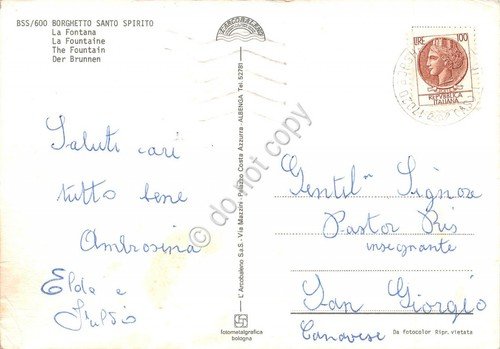 BSS/600 BORGHETTO SANTO SPIRITO
La Fontana
La Fountaine
The Fountain
Der Brunnen
Saluti cari
tutto bene
Ambrosina
Elda e
Fulvio
L'ARCOBALENO
L'Arcobaleno S.a.S. - Via Mazzini - Palazzo Costa Azzurra - ALBENGA Tel. 52781
fotometalgrafica
bologna
do not copy
LIRE 100
REPVBBLICA
ITALIANA
Gentil.ma Signora
Pastor Ris
insegnante
San Giorgio
Canavese
Da fotocolor Ripr. vietata